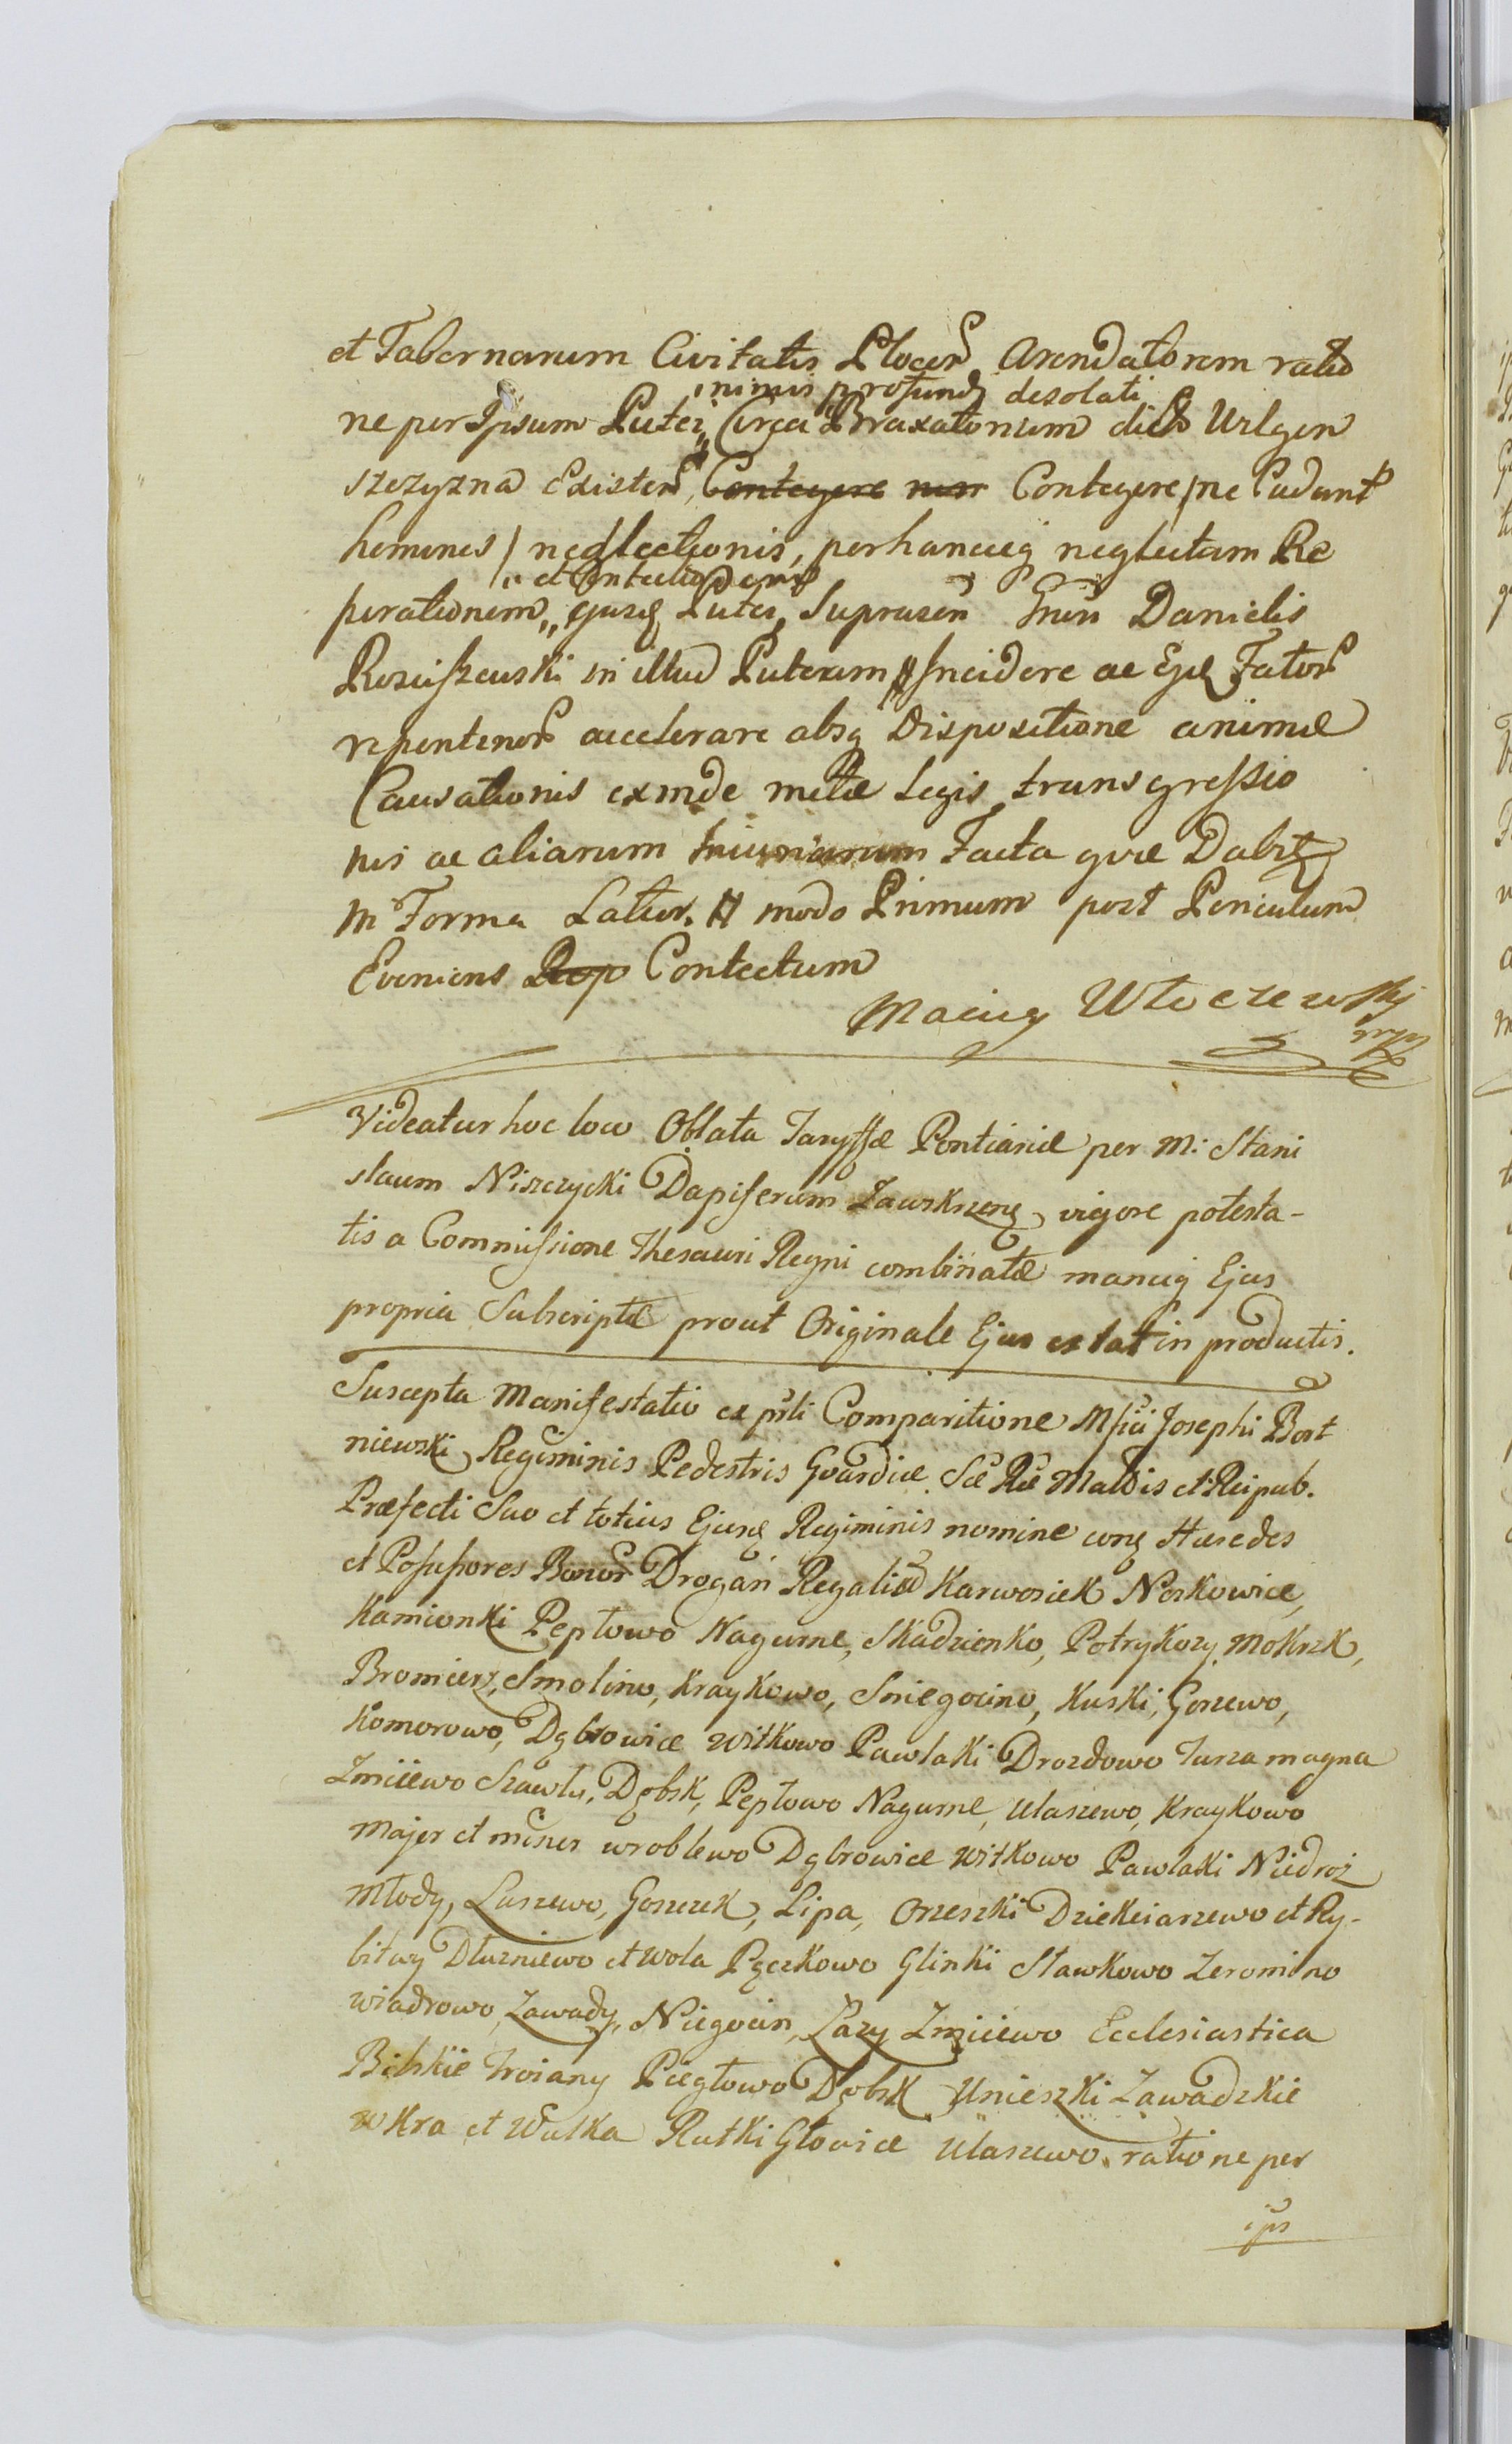 et Tabernarum Civitatis Plocen Arendatorem ratio
nimis profundi desolati
ne per Ipsum Putei Circa Braxatorium dict Wilgen
szczyzna Existen, Contegere non Contegere /ne Cadant
homines/ neglectionis, perhancq neglectam Re
et Contectionem
perationem, ejusq Putei, Suprascn Gnsi Danielis
Rosciszewski in illud Puteum Incidere ac Ejus Fator
repentinor accelerare absq Dispositione animæ
Causationis exinde metæ Legis transgressio
nis ac aliarum Iniuriarum Facta quæ Dabit
in Forma Latior. modo Primum post Periculum
Eveniens Rep Contectum
Maciey Włoczewsky
mpp
Videatur hoc loco Oblata Taryffæ Pontianiæ per M: Stani
slaum Niszczycki Dapiferum Zawskrzen vigore potesta-
tis a Commissione Thesauri Regni combinatæ manuq Ejus
propria Subscriptæ prout Originale Ejus extat in productis.
Suscepta Manifestatio ex psli Comparitione Mfici Josephi Bort
niewski Regiminis Pedestris Gvardiæ Sæ Ræ Mattis et Reipub.
Præfecti Suo et totius Ejusq Regiminis nomine conq Hæredes
et Possessores Bonor Drogan Regaliu Karwosiek Noskowice,
Kamionki Pepłowo Nagurne, Skadzienko, Potrykozy Mokrzk,
Bromierz, Smolino, Kraykowo, Sniegocino, Kuski, Gorzewo,
Komorowo, Dąbrowice Witkowo Pawlaki Drozdowo Turza magna
Zmiiewo Szawły, Dębsk, Pepłowo Nagurne, Ulaszewo, Kraykowo
Major et minor wroblewo Dąbrowice Witkowo Pawlaki Niedroż
Młody, Luszewo, Goszczk, Lipa, Orzeszki Dziekciarzewo et Ry-
bitwy Dłuzniewo et Wola Pęczkowo Glinki Sławkowo Zeromino
Wiadrowo, Zawady, Niegocin, Łazy Zmiiewo Ecclesiastica
Bielskie Troiany Piegłowo Dębsk Unieszki Zawadzkie
Wkra et Wulka Rutki Głowice Ulaszewo, ratione per
ips